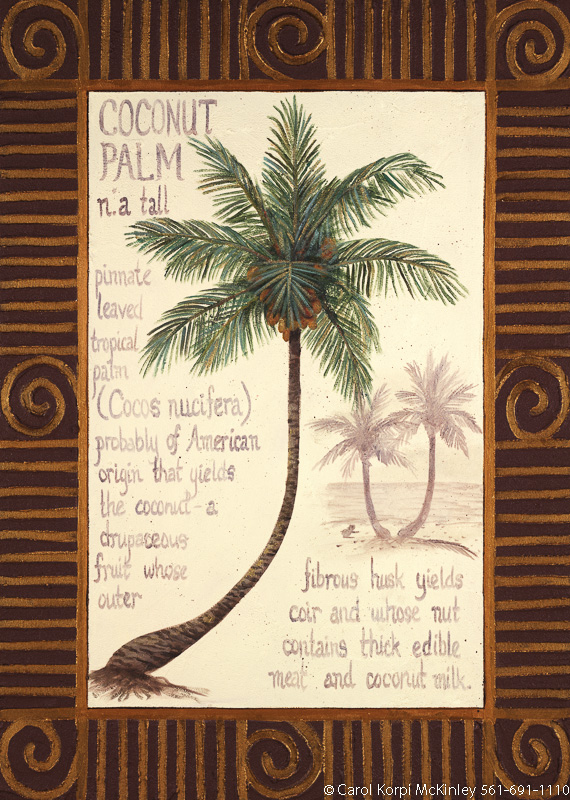 COCONUT
PALM
n. a tall
pinnate
leaved
tropical
palm
(Cocos nucifera)
probably of American
origin that yields
the coconut - a
drupaceous
fruit whose
outer
fibrous husk yields
coir and whose nut
contains thick edible
meat and coconut milk.
© Carol Korpi McKinley 561-691-1110